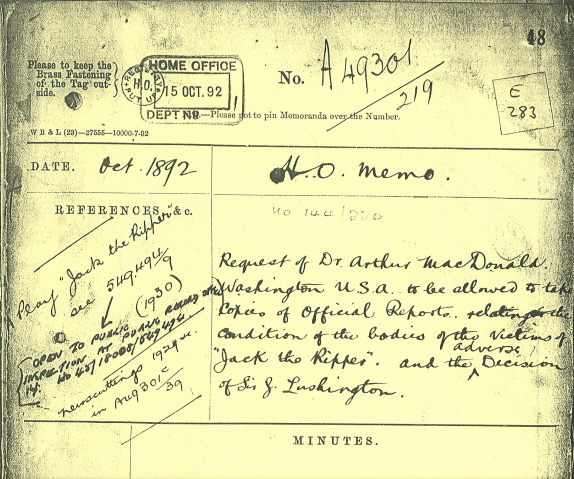 48
Please to keep the
Brass Fastening
of the Tag out-
side.
HOME OFFICE
15 OCT. 92
DEPT No
No. A 49301
219
E
283
Please not to pin Memoranda over the Number.
W B & L (23)—27555—10000-7-92
DATE. Oct. 1892
H.O. Memo.
REFERENCES, &c.
HO 144/220
Play "Jack the Ripper"
see 549,494/9
(1930)
OPEN TO PUBLIC
INSPECTION AT PUBLIC RECORD OFFICE
HO 45/18005/549494
newscuttings 1929 &c.
in A49301C/39
Request of Dr. Arthur MacDonald.
Washington U.S.A. to be allowed to take
Copies of Official Reports. relating to the
condition of the bodies of the victims of
"Jack the Ripper". and the adverse Decision
of Sir G. Lushington.
MINUTES.